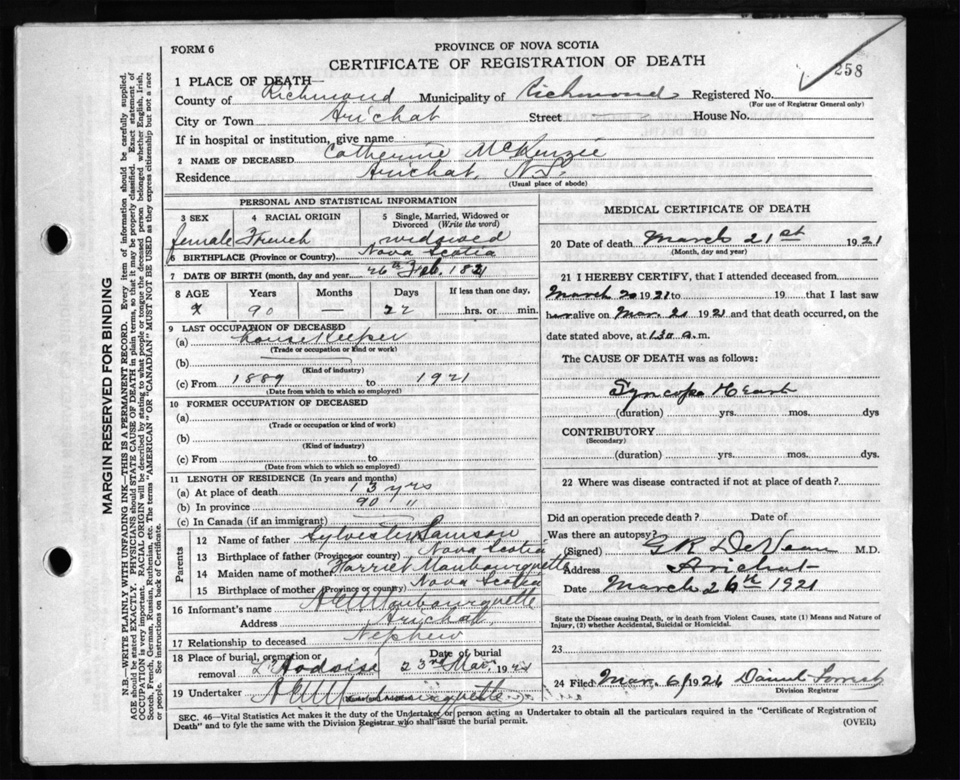 PROVINCE OF NOVA SCOTIA
FORM 6
CERTIFICATE OF REGISTRATION OF DEATH
258
1 PLACE OF DEATH—
County of Richmond Municipality of Richmond Registered No.
(For use of Registrar General only)
City or Town Arichat Street House No.
If in hospital or institution, give name
2 NAME OF DECEASED Catherine McKenzie
Residence Arichat, N.S.
(Usual place of abode)
PERSONAL AND STATISTICAL INFORMATION
3 SEX 4 RACIAL ORIGIN 5 Single, Married, Widowed or Divorced (Write the word)
female French widowed
6 BIRTHPLACE (Province or Country) Nova Scotia
7 DATE OF BIRTH (month, day and year) 26th Feb. 1821
8 AGE Years Months Days If less than one day,
90 — 22 hrs. or min.
9 LAST OCCUPATION OF DECEASED
(a) housekeeper
(Trade or occupation or kind or work)
(b)
(Kind of industry)
(c) From 1889 to 1921
(Date from which to which so employed)
10 FORMER OCCUPATION OF DECEASED
(a)
(Trade or occupation or kind of work)
(b)
(Kind of industry)
(c) From to
(Date from which to which so employed)
11 LENGTH OF RESIDENCE (In years and months)
(a) At place of death 13 yrs
(b) In province 90 "
(c) In Canada (if an immigrant)
Parents
12 Name of father Sylvester Samson
13 Birthplace of father (Province or country) Nova Scotia
14 Maiden name of mother Harriet Maubourquette
15 Birthplace of mother (Province or country) Nova Scotia
16 Informant's name Maubourquette
Address Arichat,
17 Relationship to deceased Nephew
18 Place of burial, cremation or removal Date of burial
23rd Mar. 1921
19 Undertaker
MEDICAL CERTIFICATE OF DEATH
20 Date of death March 21st 1921
(Month, day and year)
21 I HEREBY CERTIFY, that I attended deceased from
March 20 1921 to 19 that I last saw
her alive on Mar. 21 1921 and that death occurred, on the
date stated above, at 1.30 a.m.
The CAUSE OF DEATH was as follows:
Syncope Heart
(duration) yrs. mos. dys
CONTRIBUTORY
(Secondary)
(duration) yrs. mos. dys.
22 Where was disease contracted if not at place of death?
Did an operation precede death? Date of
Was there an autopsy?
(Signed) M.D.
Address Arichat
Date March 26th 1921
State the Disease causing Death, or in death from Violent Causes, state (1) Means and Nature of Injury, (2) whether Accidental, Suicidal or Homicidal.
23
24 Filed Mar. Daniel
Division Registrar
SEC. 46—Vital Statistics Act makes it the duty of the Undertaker or person acting as Undertaker to obtain all the particulars required in the "Certificate of Registration of
Death" and to fyle the same with the Division Registrar who shall issue the burial permit.
(OVER)
MARGIN RESERVED FOR BINDING
N.B.—WRITE PLAINLY WITH UNFADING INK—THIS IS A PERMANENT RECORD. Every item of information should be carefully supplied.
AGE should be stated EXACTLY. PHYSICIANS should STATE CAUSE OF DEATH in plain terms, so that it may be properly classified. Exact statement of
OCCUPATION is very important. RACIAL ORIGIN will be described by stating to what people or tongue the deceased person belonged whether English, Irish,
Scotch, French, German, Russian, Ruthenian, etc. The terms "AMERICAN" OR "CANADIAN" MUST NOT BE USED as they express citizenship but not a race
or people. See instructions on back of Certificate.